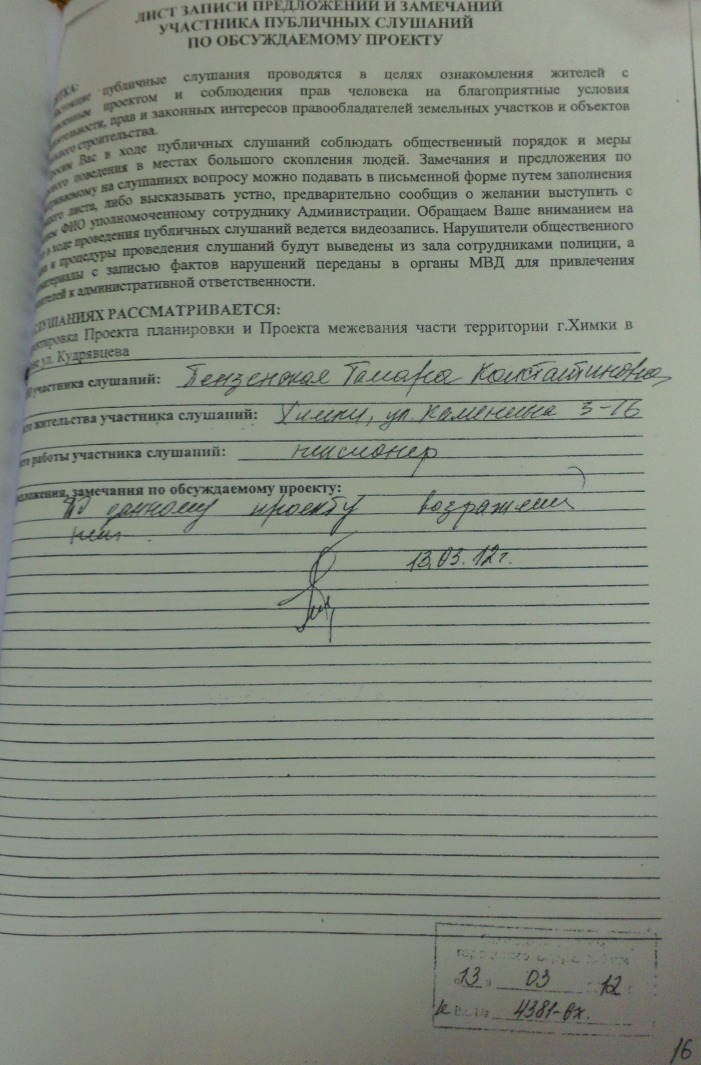 ЛИСТ ЗАПИСИ ПРЕДЛОЖЕНИЙ И ЗАМЕЧАНИЙ
УЧАСТНИКА ПУБЛИЧНЫХ СЛУШАНИЙ
ПО ОБСУЖДАЕМОМУ ПРОЕКТУ
публичные слушания проводятся в целях ознакомления жителей с
проектом и соблюдения прав человека на благоприятные условия
прав и законных интересов правообладателей земельных участков и объектов
строительства.
Вас в ходе публичных слушаний соблюдать общественный порядок и меры
поведения в местах большого скопления людей. Замечания и предложения по
на слушаниях вопросу можно подавать в письменной форме путем заполнения
листа, либо высказывать устно, предварительно сообщив о желании выступить с
ФИО уполномоченному сотруднику Администрации. Обращаем Ваше вниманием на
в ходе проведения публичных слушаний ведется видеозапись. Нарушители общественного
и процедуры проведения слушаний будут выведены из зала сотрудниками полиции, а
материалы с записью фактов нарушений переданы в органы МВД для привлечения
к административной ответственности.
СЛУШАНИЯХ РАССМАТРИВАЕТСЯ:
Проекта планировки и Проекта межевания части территории г.Химки в
ул. Кудрявцева
участника слушаний: Тамара Константиновна
жительства участника слушаний: Химки, ул. 3-16
работы участника слушаний: пенсионер
замечания по обсуждаемому проекту:
По данному проекту возражений
нет.
13.03.12г.
13 03 12
4381-вх.
16